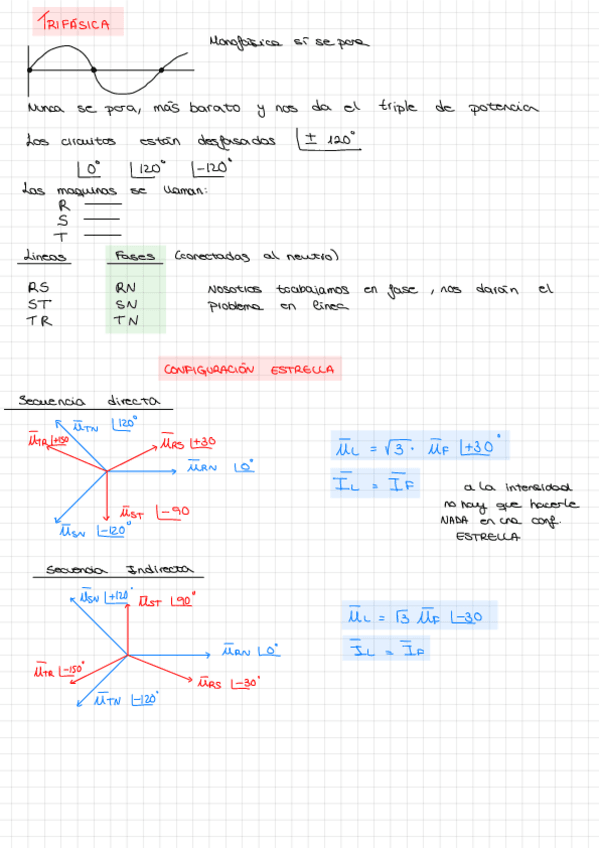 TRIFÁSICA
Monofásica sí se para
Nunca se para, más barato y nos da el triple de potencia
Los circuitos están desfasados |± 120°
|0° |120° |-120°
Las maquinas se llaman:
R
S
T
Lineas Fases (conectadas al neutro)
RS RN Nosotros trabajamos en fase, nos darán el
ST SN problema en linea
TR TN
CONFIGURACIÓN ESTRELLA
Secuencia directa
U̅TN |120°
U̅TR |+150 U̅RS |+30
U̅RN |0°
U̅ST |-90
U̅SN |-120°
U̅L = √3 · U̅F |+30°
I̅L = I̅F
a la intensidad
no hay que hacerle
NADA en una conf.
ESTRELLA
Secuencia Indirecta
U̅SN |+120° U̅ST |90°
U̅RN |0°
U̅TR |-150° U̅RS |-30°
U̅TN |-120°
U̅L = √3 U̅F |-30
I̅L = I̅F